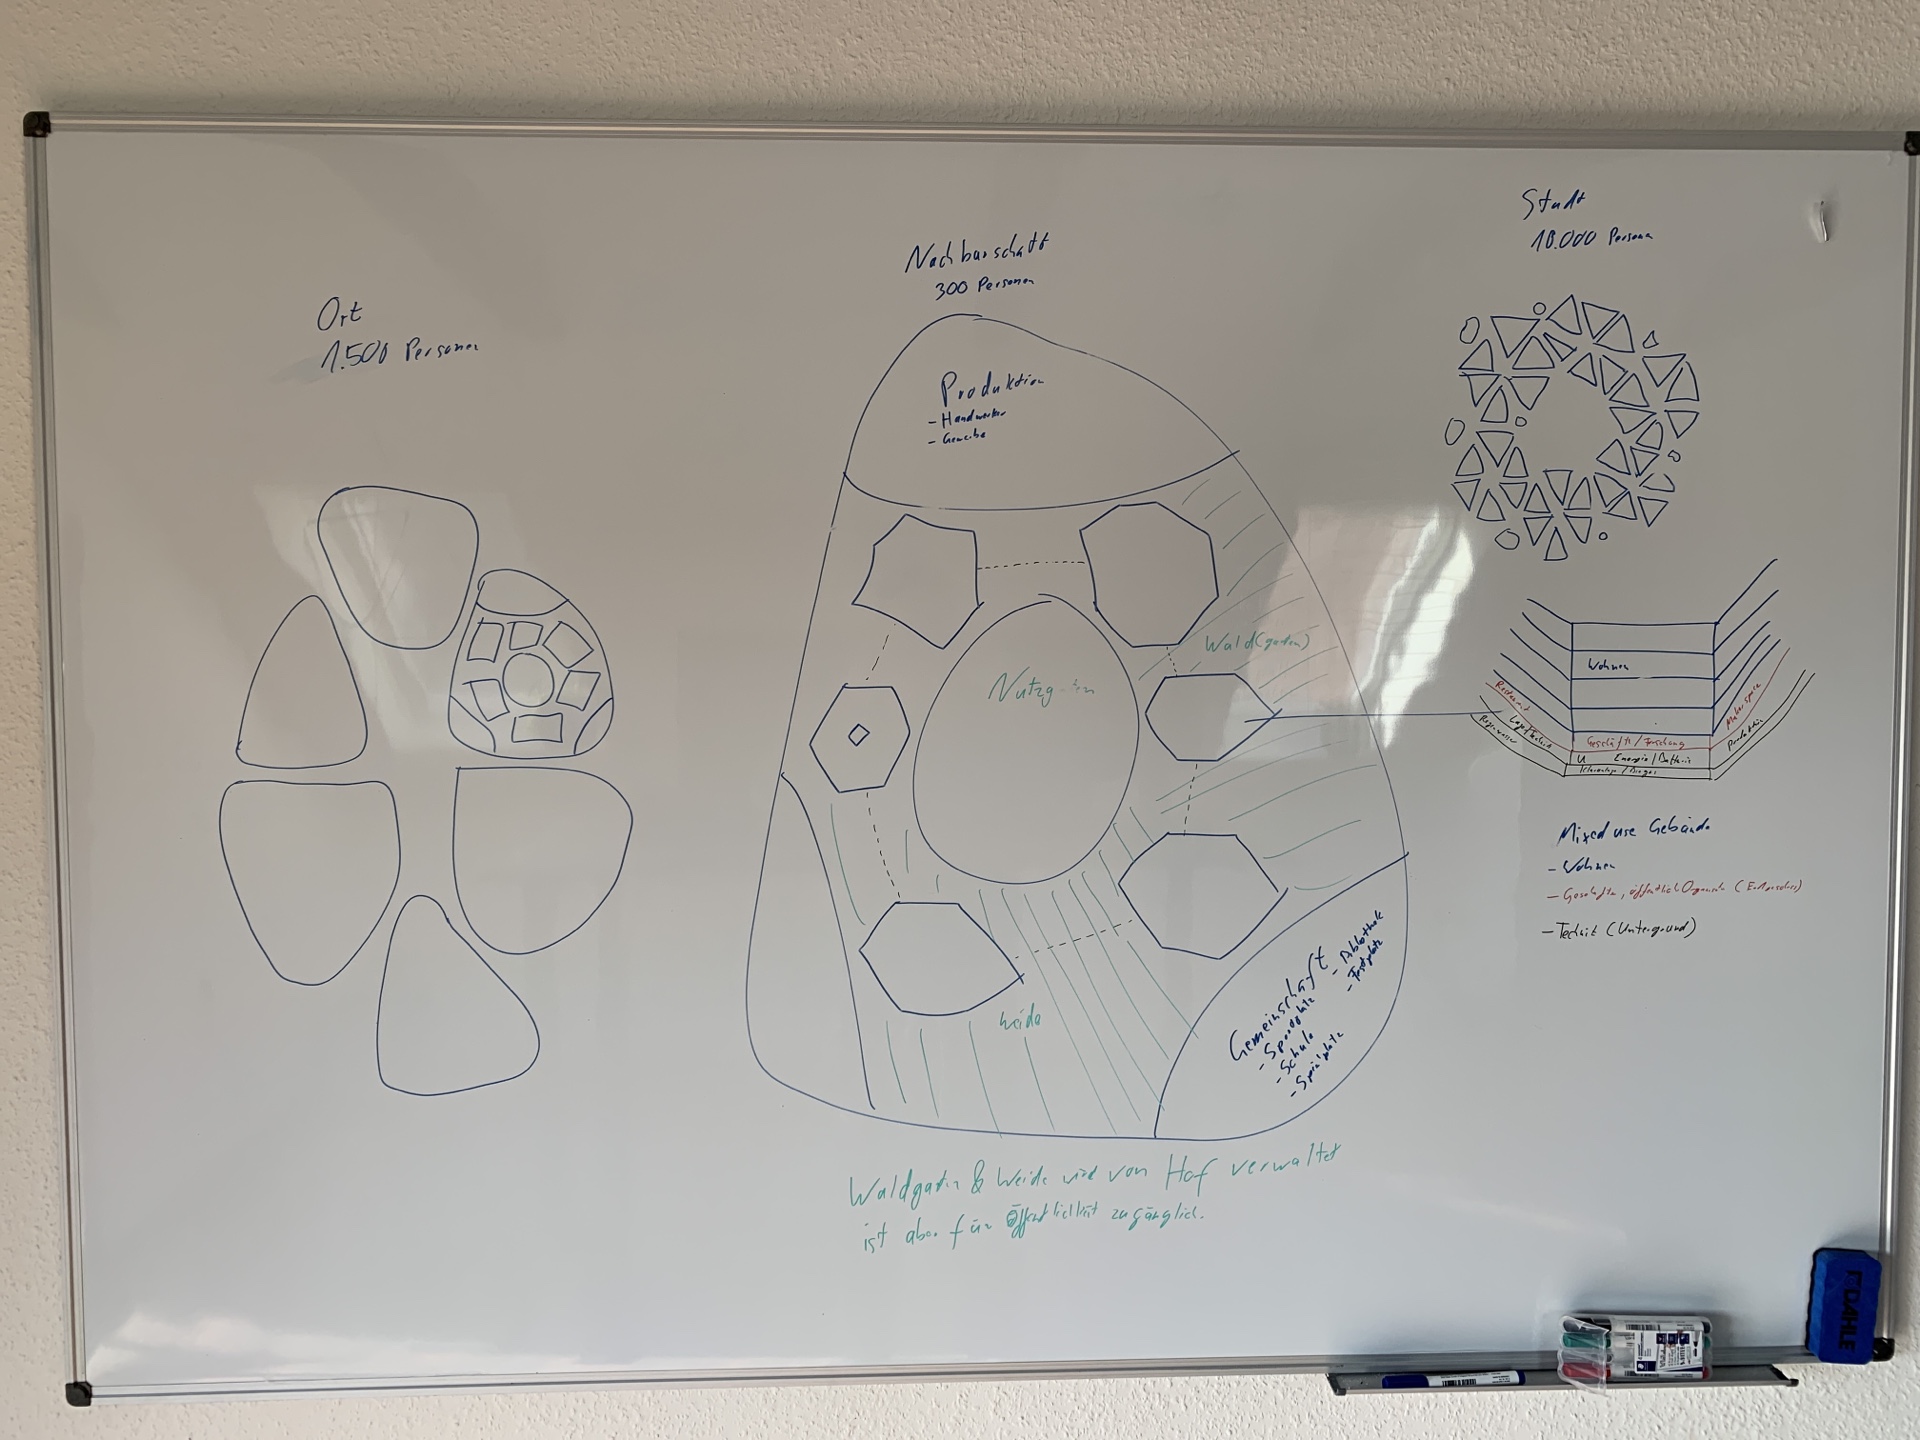 Ort
1.500 Personen
Nachbarschaft
300 Personen
Produktion
- Handwerker
- Gewerbe
Wald(garten)
Nutzg
Weide
Gemeinschaft
- Sportplatz
- Schule
- Spielplatz
- Bibliothek
- Festplatz
Waldgarten & Weide wird von Hof verwaltet
ist aber für Öffentlichkeit zugänglich.
Stadt
10.000 Personen
Wohnen
Restaurant
Lager/Technik
Regenwasser
Geschäfte / Forschung
Energie / Batterie
Makerspace
Produktion
Mixed use Gebäude
- Wohnen
- Geschäfte, öffentlich
- Technik (Untergrund)
DAHLE